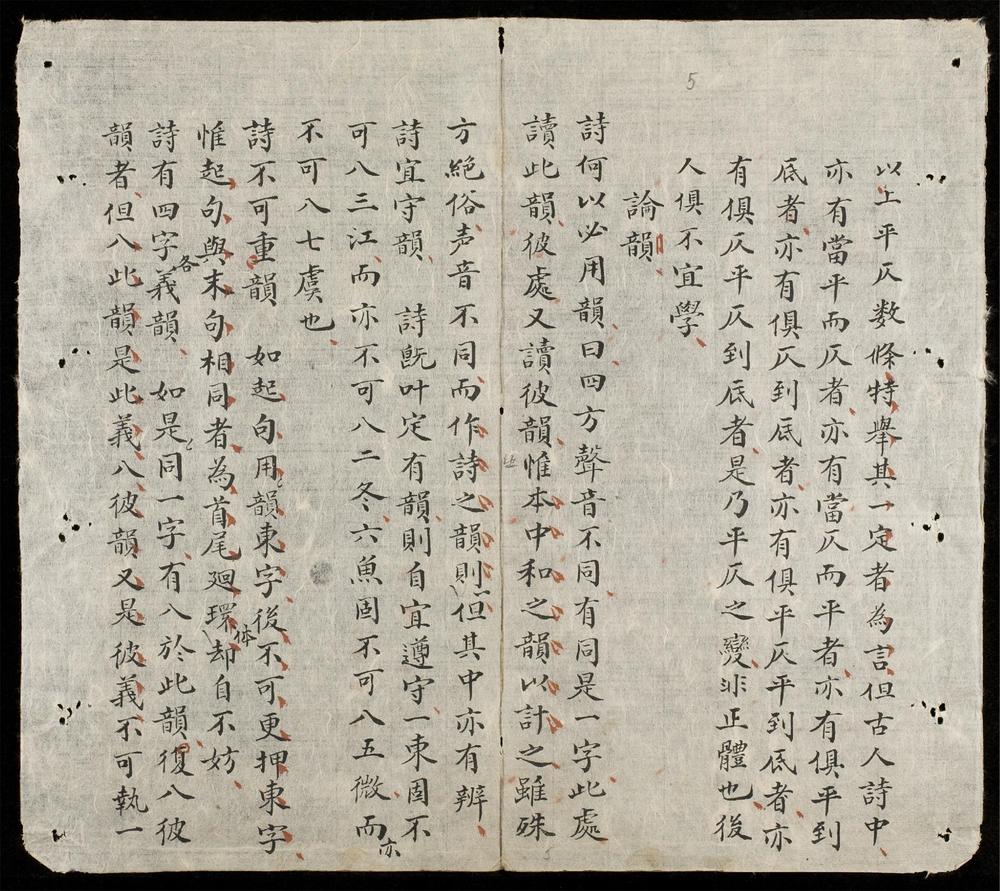 5
以上平仄数條特舉其一定者為言但古人詩中
亦有當平而仄者亦有當仄而平者亦有俱平到
底者亦有俱仄到底者亦有俱平仄平到底者亦
有俱仄平仄到底者是乃平仄之變非正體也後
人俱不宜學
論韻
詩何以必用韻曰四方聲音不同有同是一字此處
讀此韻彼處又讀彼韻惟本中和之韻以計之雖殊
方絕俗声音不同而作詩之韻則但其中亦有辨
詩宜守韻 詩既叶定有韻則自宜遵守一東固不
可八三江而亦不可八二冬六魚固不可八五微而亦
不可八七虞也
詩不可重韻 如起句用韻東字後不可更押東字
惟起句與末句相同者為首尾廻環体却自不妨
詩有四字各義韻 如是同一字有八於此韻復八彼
韻者但八此韻是此義八彼韻又是彼義不可執一